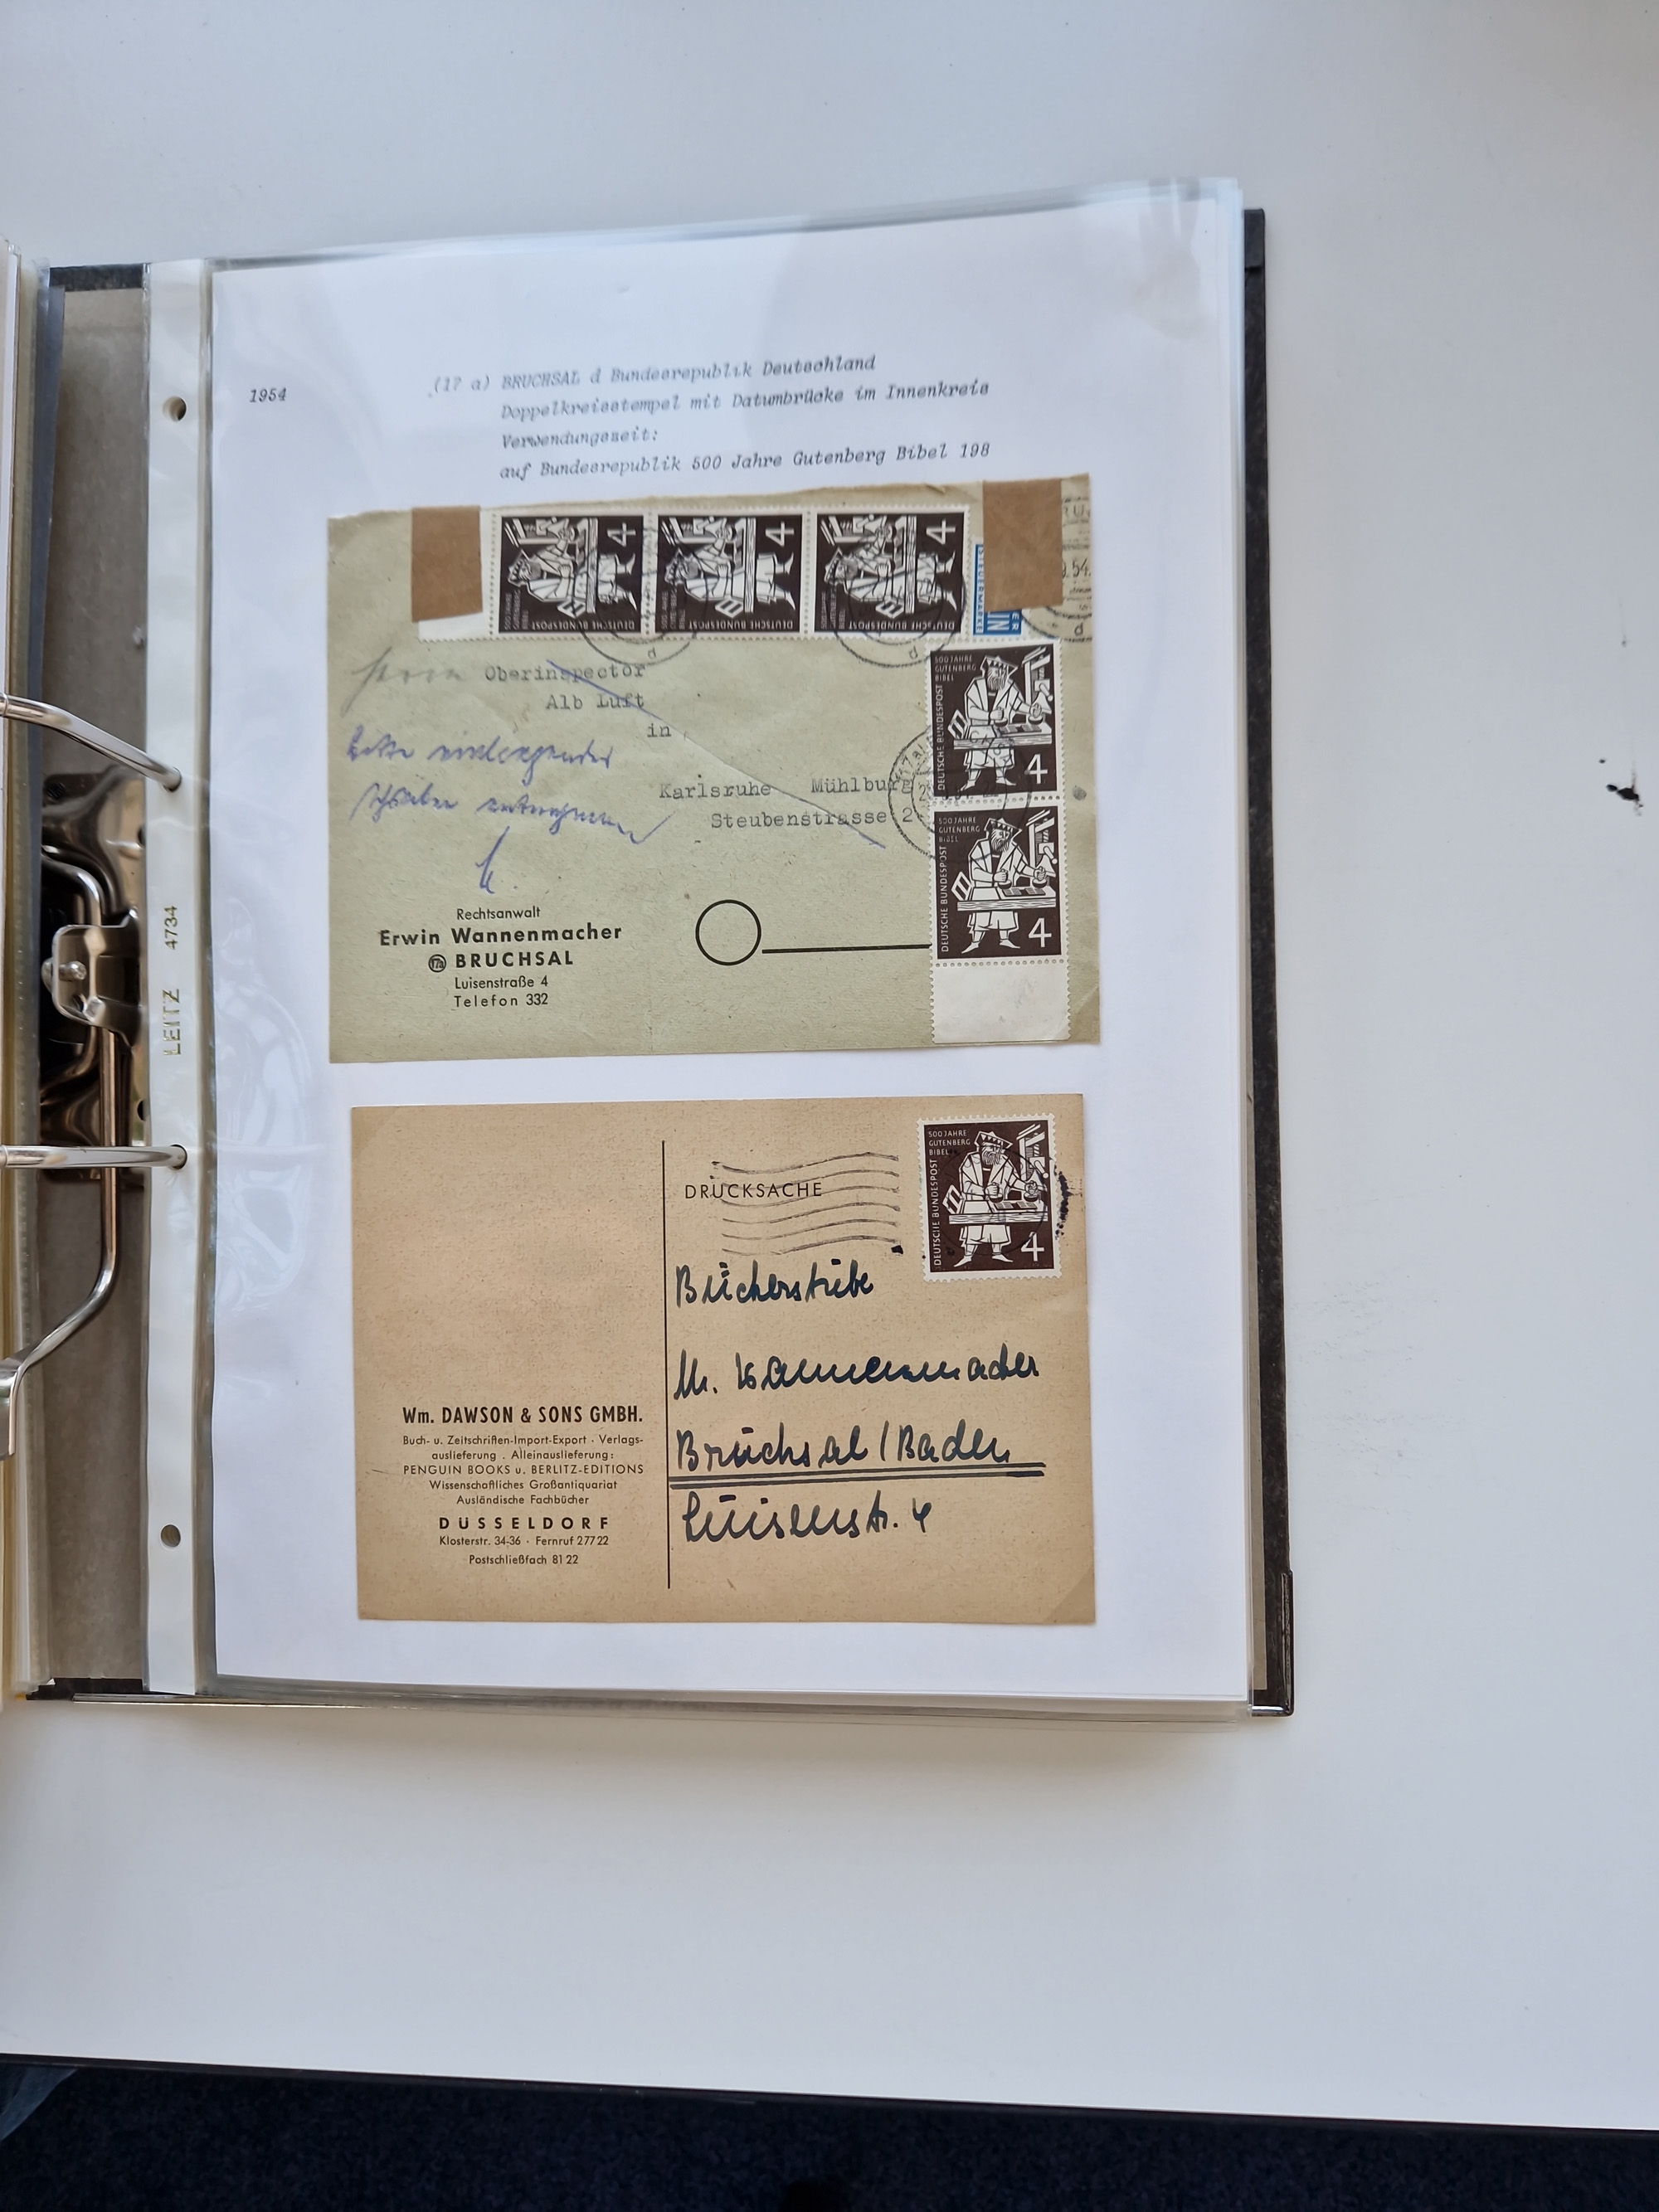 1954
(17 a) BRUCHSAL d Bundesrepublik Deutschland
Doppelkreisstempel mit Datumbrücke im Innenkreis
Verwendungszeit:
auf Bundesrepublik 500 Jahre Gutenberg Bibel 198
4
4
4
DEUTSCHE BUNDESPOST
DEUTSCHE BUNDESPOST
DEUTSCHE BUNDESPOST
d
d
d
54
Herrn Oberinspector
Alb Luft
in
Karlsruhe Mühlburg
Steubenstrasse 2
Bitte
500 JAHRE
GUTENBERG
BIBEL
DEUTSCHE BUNDESPOST
4
500 JAHRE
GUTENBERG
BIBEL
DEUTSCHE BUNDESPOST
4
Rechtsanwalt
Erwin Wannenmacher
17a BRUCHSAL
Luisenstraße 4
Telefon 332
LEITZ 4734
500 JAHRE
GUTENBERG
BIBEL
DEUTSCHE BUNDESPOST
4
DRUCKSACHE
Bücherstube
M. Wannenmacher
Bruchsal / Baden
Luisenstr. 4
Wm. DAWSON & SONS GMBH.
Buch- u. Zeitschriften-Import-Export · Verlags-
auslieferung . Alleinauslieferung:
PENGUIN BOOKS u. BERLITZ-EDITIONS
Wissenschaftliches Großantiquariat
Ausländische Fachbücher
DÜSSELDORF
Klosterstr. 34-36 · Fernruf 27722
Postschließfach 8122